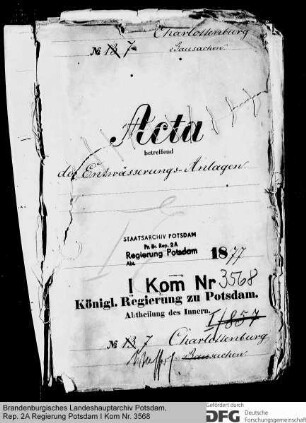 Charlottenburg
№ 7 Bausachen
Acta
betreffend
die Entwässerungs-Anlagen
STAATSARCHIV POTSDAM
Pr. Br. Rep. 2A
Regierung Potsdam
Abt.
1877
I Kom Nr 3568
Königl. Regierung zu Potsdam.
Abtheilung des Innern.
I/857
№ 7 Charlottenburg
Bausachen
Brandenburgisches Landeshauptarchiv Potsdam,
Rep. 2A Regierung Potsdam I Kom Nr. 3568
Gefördert durch
DFG Deutsche
Forschungsgemeinschaft